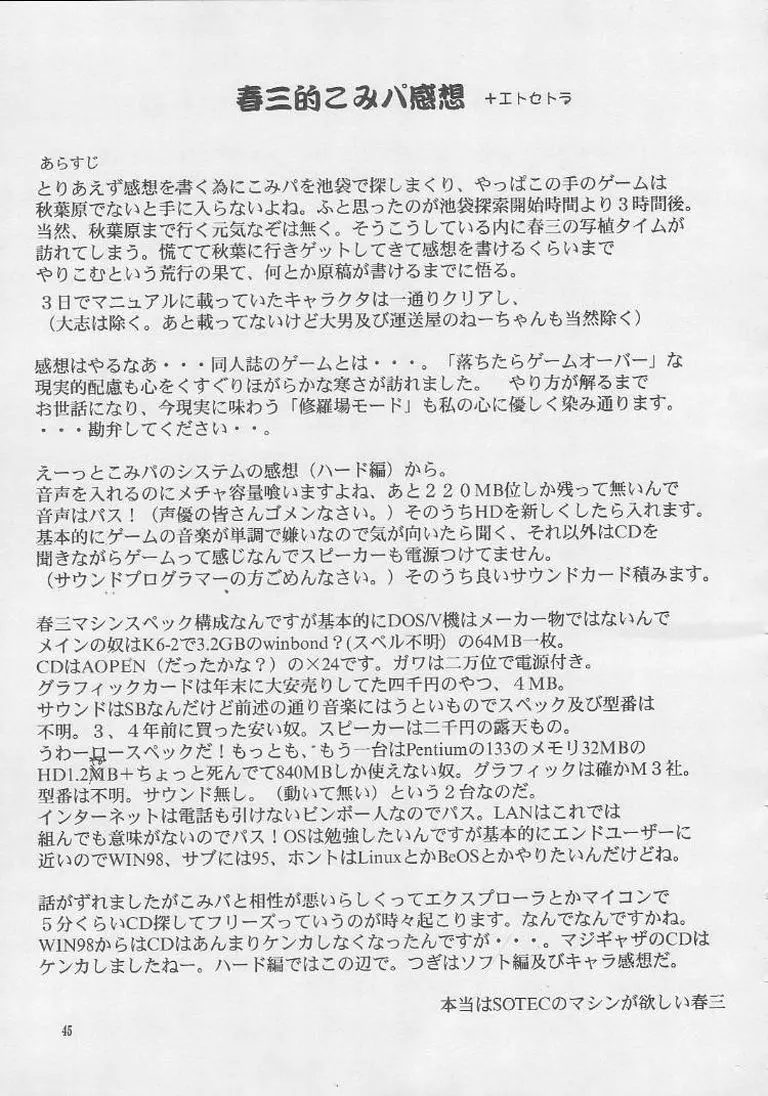 春三的こみパ感想 +エトセトラ
あらすじ
とりあえず感想を書く為にこみパを池袋で探しまくり、やっぱこの手のゲームは
秋葉原でないと手に入らないよね。ふと思ったのが池袋探索開始時間より３時間後。
当然、秋葉原まで行く元気なぞは無く。そうこうしている内に春三の写植タイムが
訪れてしまう。慌てて秋葉に行きゲットしてきて感想を書けるくらいまで
やりこむという荒行の果て、何とか原稿が書けるまでに悟る。
３日でマニュアルに載っていたキャラクタは一通りクリアし、
（大志は除く。あと載ってないけど大男及び運送屋のねーちゃんも当然除く）
感想はやるなあ・・・同人誌のゲームとは・・・。「落ちたらゲームオーバー」な
現実的配慮も心をくすぐりほがらかな寒さが訪れました。　やり方が解るまで
お世話になり、今現実に味わう「修羅場モード」も私の心に優しく染み通ります。
・・・勘弁してください・・。
えーっとこみパのシステムの感想（ハード編）から。
音声を入れるのにメチャ容量喰いますよね、あと２２０MB位しか残って無いんで
音声はパス！（声優の皆さんゴメンなさい。）そのうちHDを新しくしたら入れます。
基本的にゲームの音楽が単調で嫌いなので気が向いたら聞く、それ以外はCDを
聞きながらゲームって感じなんでスピーカーも電源つけてません。
（サウンドプログラマーの方ごめんなさい。）そのうち良いサウンドカード積みます。
春三マシンスペック構成なんですが基本的にDOS/V機はメーカー物ではないんで
メインの奴はK6-2で3.2GBのwinbond？(スペル不明）の64MB一枚。
CDはAOPEN（だったかな？）の×24です。ガワは二万位で電源付き。
グラフィックカードは年末に大安売りしてた四千円のやつ、４MB。
サウンドはSBなんだけど前述の通り音楽にはうといものでスペック及び型番は
不明。３、４年前に買った安い奴。スピーカーは二千円の露天もの。
うわーロースペックだ！もっとも、もう一台はPentiumの133のメモリ32MBの
HD1.2MB＋ちょっと死んでて840MBしか使えない奴。グラフィックは確かM３社。
型番は不明。サウンド無し。（動いて無い）という２台なのだ。
インターネットは電話も引けないビンボー人なのでパス。LANはこれでは
組んでも意味がないのでパス！OSは勉強したいんですが基本的にエンドユーザーに
近いのでWIN98、サブには95、ホントはLinuxとかBeOSとかやりたいんだけどね。
話がずれましたがこみパと相性が悪いらしくってエクスプローラとかマイコンで
５分くらいCD探してフリーズっていうのが時々起こります。なんでなんですかね。
WIN98からはCDはあんまりケンカしなくなったんですが・・・。マジギャザのCDは
ケンカしましたねー。ハード編ではこの辺で。つぎはソフト編及びキャラ感想だ。
本当はSOTECのマシンが欲しい春三
45